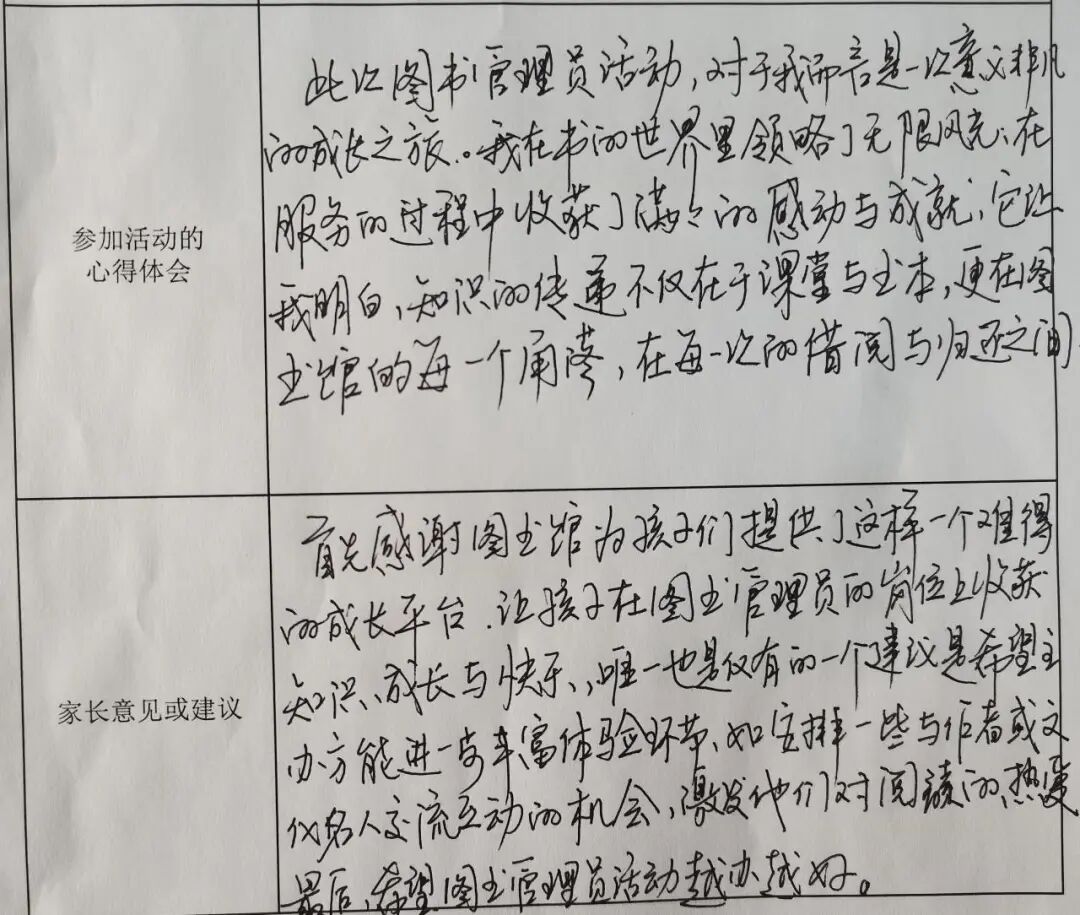 参加活动的
心得体会
此次图书管理员活动,对于我而言是一次意义非凡
的成长之旅。我在书的世界里领略了无限风光,在
服务的过程中收获了满々的感动与成就,它让
我明白,知识的传递不仅在于课堂与书本,更在图
书馆的每一个角落,在每一次的借阅与归还之间.
家长意见或建议
首先感谢图书馆为孩子们提供了这样一个难得
的成长平台.让孩子在图书管理员的岗位上收获
知识、成长与快乐,唯一也是仅有的一个建议是希望主
办方能进一步丰富体验环节、如安排一些与作者或文
化名人交流互动的机会,激发他们对阅读的热爱
最后,希望图书管理员活动越办越好。